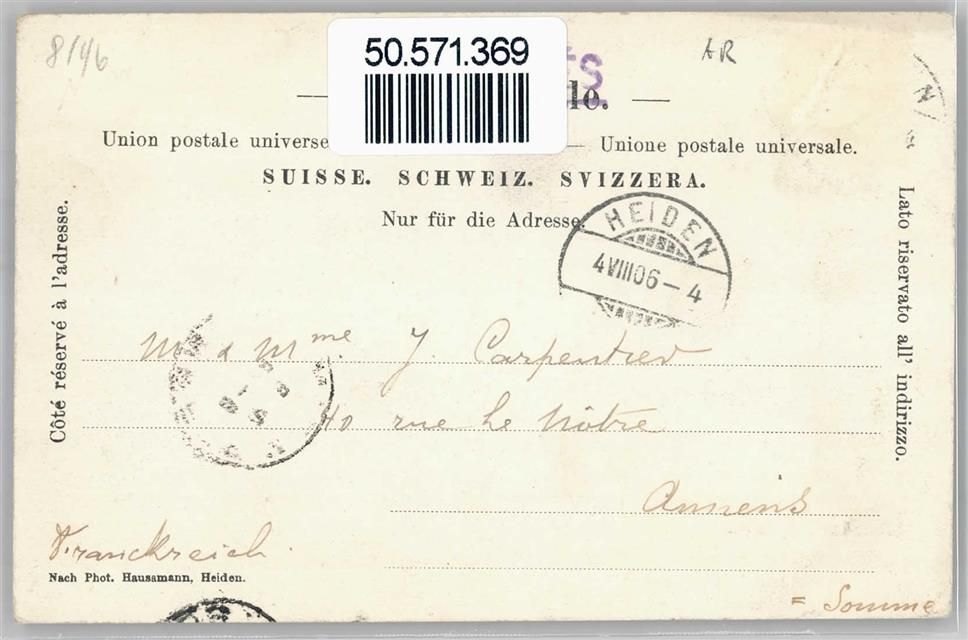 8146
50.571.369
AR
Union postale universe
Unione postale universale.
SUISSE. SCHWEIZ. SVIZZERA.
Nur für die Adresse.
Côté réservé à l'adresse.
Lato riservato all' indirizzo.
HEIDEN
4 VIII 06 – 4
M & Mme J. Carpentier
40 rue Le Nôtre
Amiens
Franckreich.
Nach Phot. Hausamann, Heiden.
= Somme